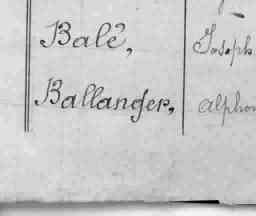 Balé, Joseph
Ballanger, Alphon